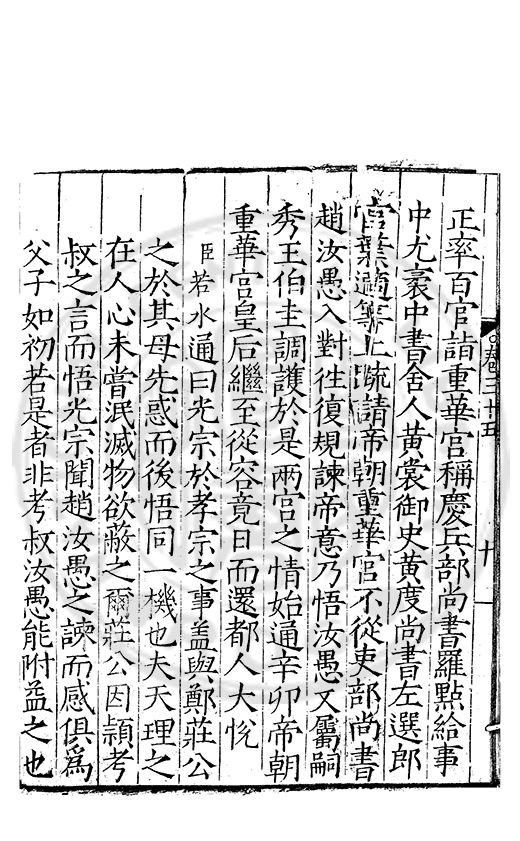 卷三十五
十
正率百官詣重華宮稱慶兵部尚書羅點給事
中尤袤中書舍人黃裳御史黃度尚書左選郎
官葉適等上疏請帝朝重華宮不從吏部尚書
趙汝愚入對徃復規諫帝意乃悟汝愚又屬嗣
秀王伯圭調護於是兩宮之情始通辛卯帝朝
重華宮皇后繼至從容竟日而還都人大悅
臣若水通曰光宗於孝宗之事盖與鄭莊公
之於其母先惑而後悟同一機也夫天理之
在人心未嘗泯滅物欲蔽之爾莊公因潁考
叔之言而悟光宗聞趙汝愚之諫而感俱爲
父子如初若是者非考叔汝愚能附益之也